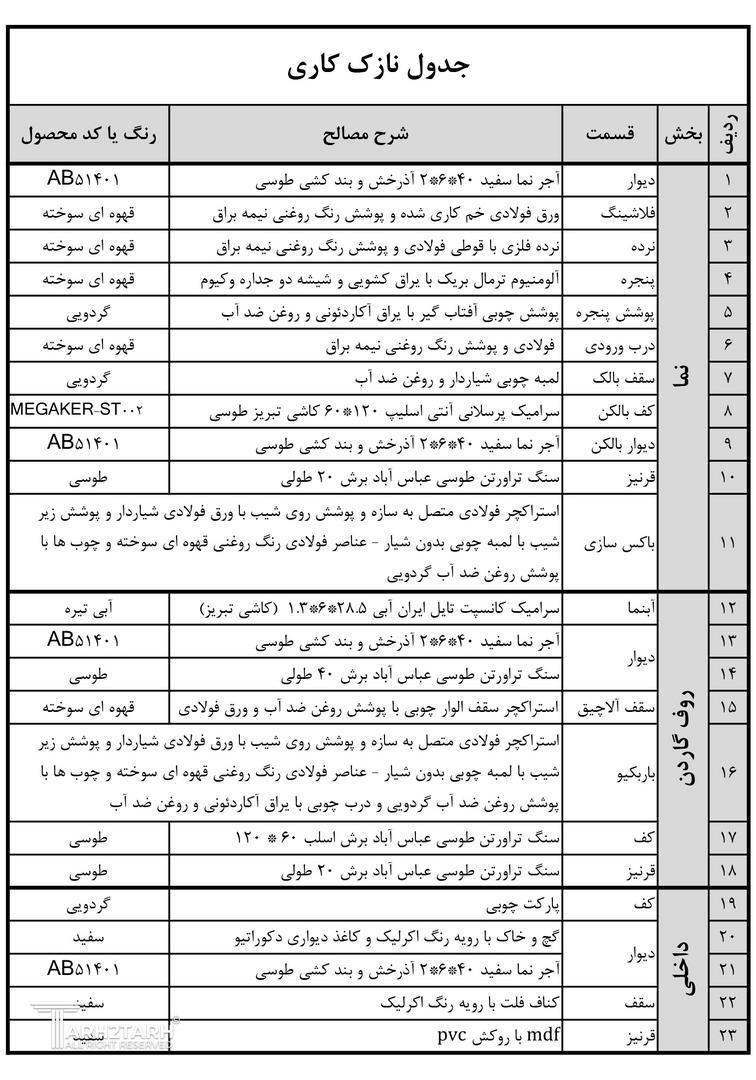 جدول نازک کاری
ردیف بخش قسمت شرح مصالح رنگ یا کد محصول
نما
۱ دیوار آجر نما سفید ۴۰*۶*۲ آذرخش و بند کشی طوسی AB۵۱۴۰۱
۲ فلاشینگ ورق فولادی خم کاری شده و پوشش رنگ روغنی نیمه براق قهوه ای سوخته
۳ نرده نرده فلزی با قوطی فولادی و پوشش رنگ روغنی نیمه براق قهوه ای سوخته
۴ پنجره آلومنیوم ترمال بریک با یراق کشویی و شیشه دو جداره وکیوم قهوه ای سوخته
۵ پوشش پنجره پوشش چوبی آفتاب گیر با یراق آکاردئونی و روغن ضد آب گردویی
۶ درب ورودی فولادی و پوشش رنگ روغنی نیمه براق قهوه ای سوخته
۷ سقف بالک لمبه چوبی شیاردار و روغن ضد آب گردویی
۸ کف بالکن سرامیک پرسلانی آنتی اسلیپ ۱۲۰*۶۰ کاشی تبریز طوسی MEGAKER-ST۰۰۲
۹ دیوار بالکن آجر نما سفید ۴۰*۶*۲ آذرخش و بند کشی طوسی AB۵۱۴۰۱
۱۰ قرنیز سنگ تراورتن طوسی عباس آباد برش ۲۰ طولی طوسی
۱۱ باکس سازی استراکچر فولادی متصل به سازه و پوشش روی شیب با ورق فولادی شیاردار و پوشش زیر
شیب با لمبه چوبی بدون شیار - عناصر فولادی رنگ روغنی قهوه ای سوخته و چوب ها با
پوشش روغن ضد آب گردویی
روف گاردن
۱۲ آبنما سرامیک کانسپت تایل ایران آبی ۲۸.۵*۶*۱.۳ (کاشی تبریز) آبی تیره
۱۳ دیوار آجر نما سفید ۴۰*۶*۲ آذرخش و بند کشی طوسی AB۵۱۴۰۱
۱۴ سنگ تراورتن طوسی عباس آباد برش ۴۰ طولی طوسی
۱۵ سقف آلاچیق استراکچر سقف الوار چوبی با پوشش روغن ضد آب و ورق فولادی قهوه ای سوخته
۱۶ باربکیو استراکچر فولادی متصل به سازه و پوشش روی شیب با ورق فولادی شیاردار و پوشش زیر
شیب با لمبه چوبی بدون شیار - عناصر فولادی رنگ روغنی قهوه ای سوخته و چوب ها با
پوشش روغن ضد آب گردویی و درب چوبی با یراق آکاردئونی و روغن ضد آب
۱۷ کف سنگ تراورتن طوسی عباس آباد برش اسلب ۶۰ * ۱۲۰ طوسی
۱۸ قرنیز سنگ تراورتن طوسی عباس آباد برش ۲۰ طولی طوسی
داخلی
۱۹ کف پارکت چوبی گردویی
۲۰ دیوار گچ و خاک با رویه رنگ اکرلیک و کاغذ دیواری دکوراتیو سفید
۲۱ آجر نما سفید ۴۰*۶*۲ آذرخش و بند کشی طوسی AB۵۱۴۰۱
۲۲ سقف کناف فلت با رویه رنگ اکرلیک سفید
۲۳ قرنیز mdf با روکش pvc سفید
TARH2TARH©
ALL RIGHT RESERVED